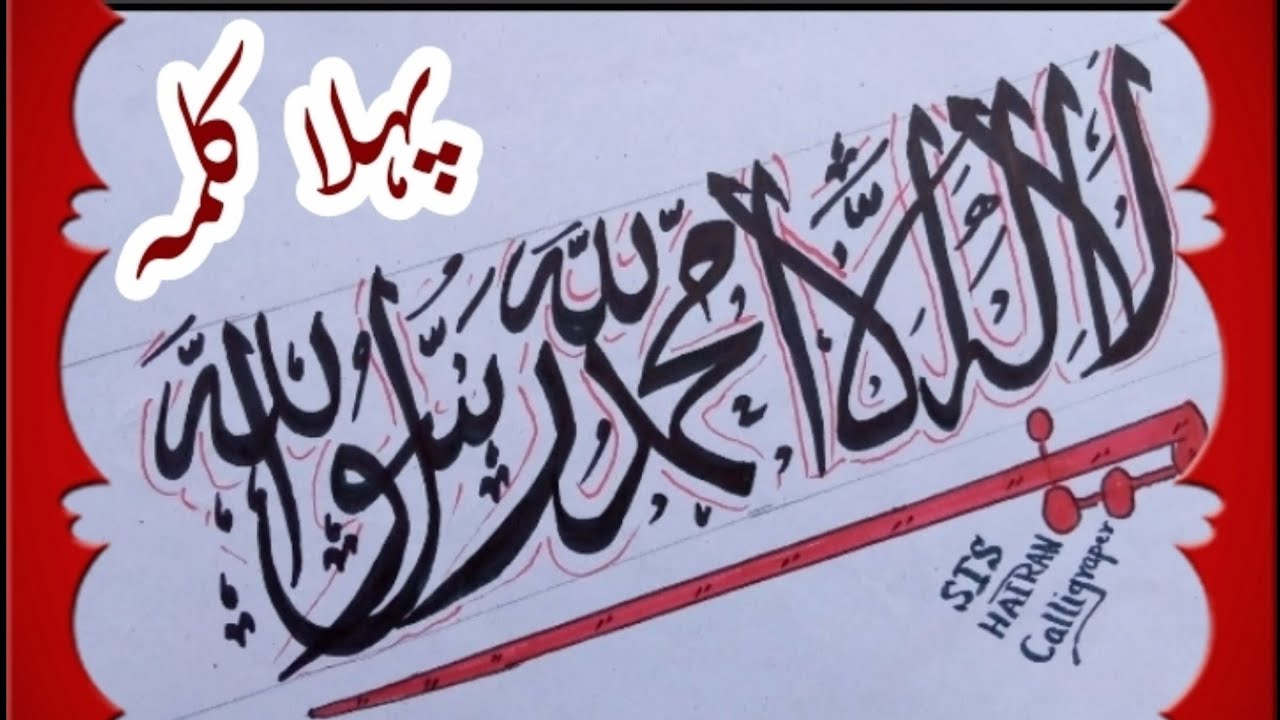 پہلا کلمہ
لا الہ الا اللہ محمد رسول اللہ
STS
HAIRAN
Calligraper